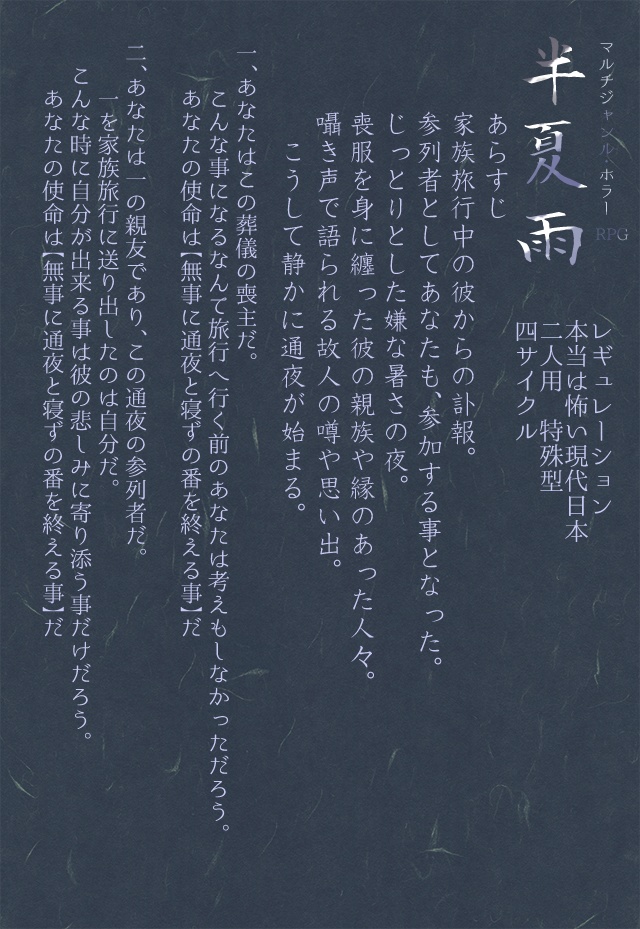 マルチジャンル・ホラーRPG
半夏雨
レギュレーション
本当は怖い現代日本
二人用 特殊型
四サイクル
あらすじ
家族旅行中の彼からの訃報。
参列者としてあなたも、参加する事となった。
じっとりとした嫌な暑さの夜。
喪服を身に纏った彼の親族や縁のあった人々。
囁き声で語られる故人の噂や思い出。
こうして静かに通夜が始まる。
一、あなたはこの葬儀の喪主だ。
こんな事になるなんて旅行へ行く前のあなたは考えもしなかっただろう。
あなたの使命は【無事に通夜と寝ずの番を終える事】だ
二、あなたは一の親友であり、この通夜の参列者だ。
一を家族旅行に送り出したのは自分だ。
こんな時に自分が出来る事は彼の悲しみに寄り添う事だけだろう。
あなたの使命は【無事に通夜と寝ずの番を終える事】だ